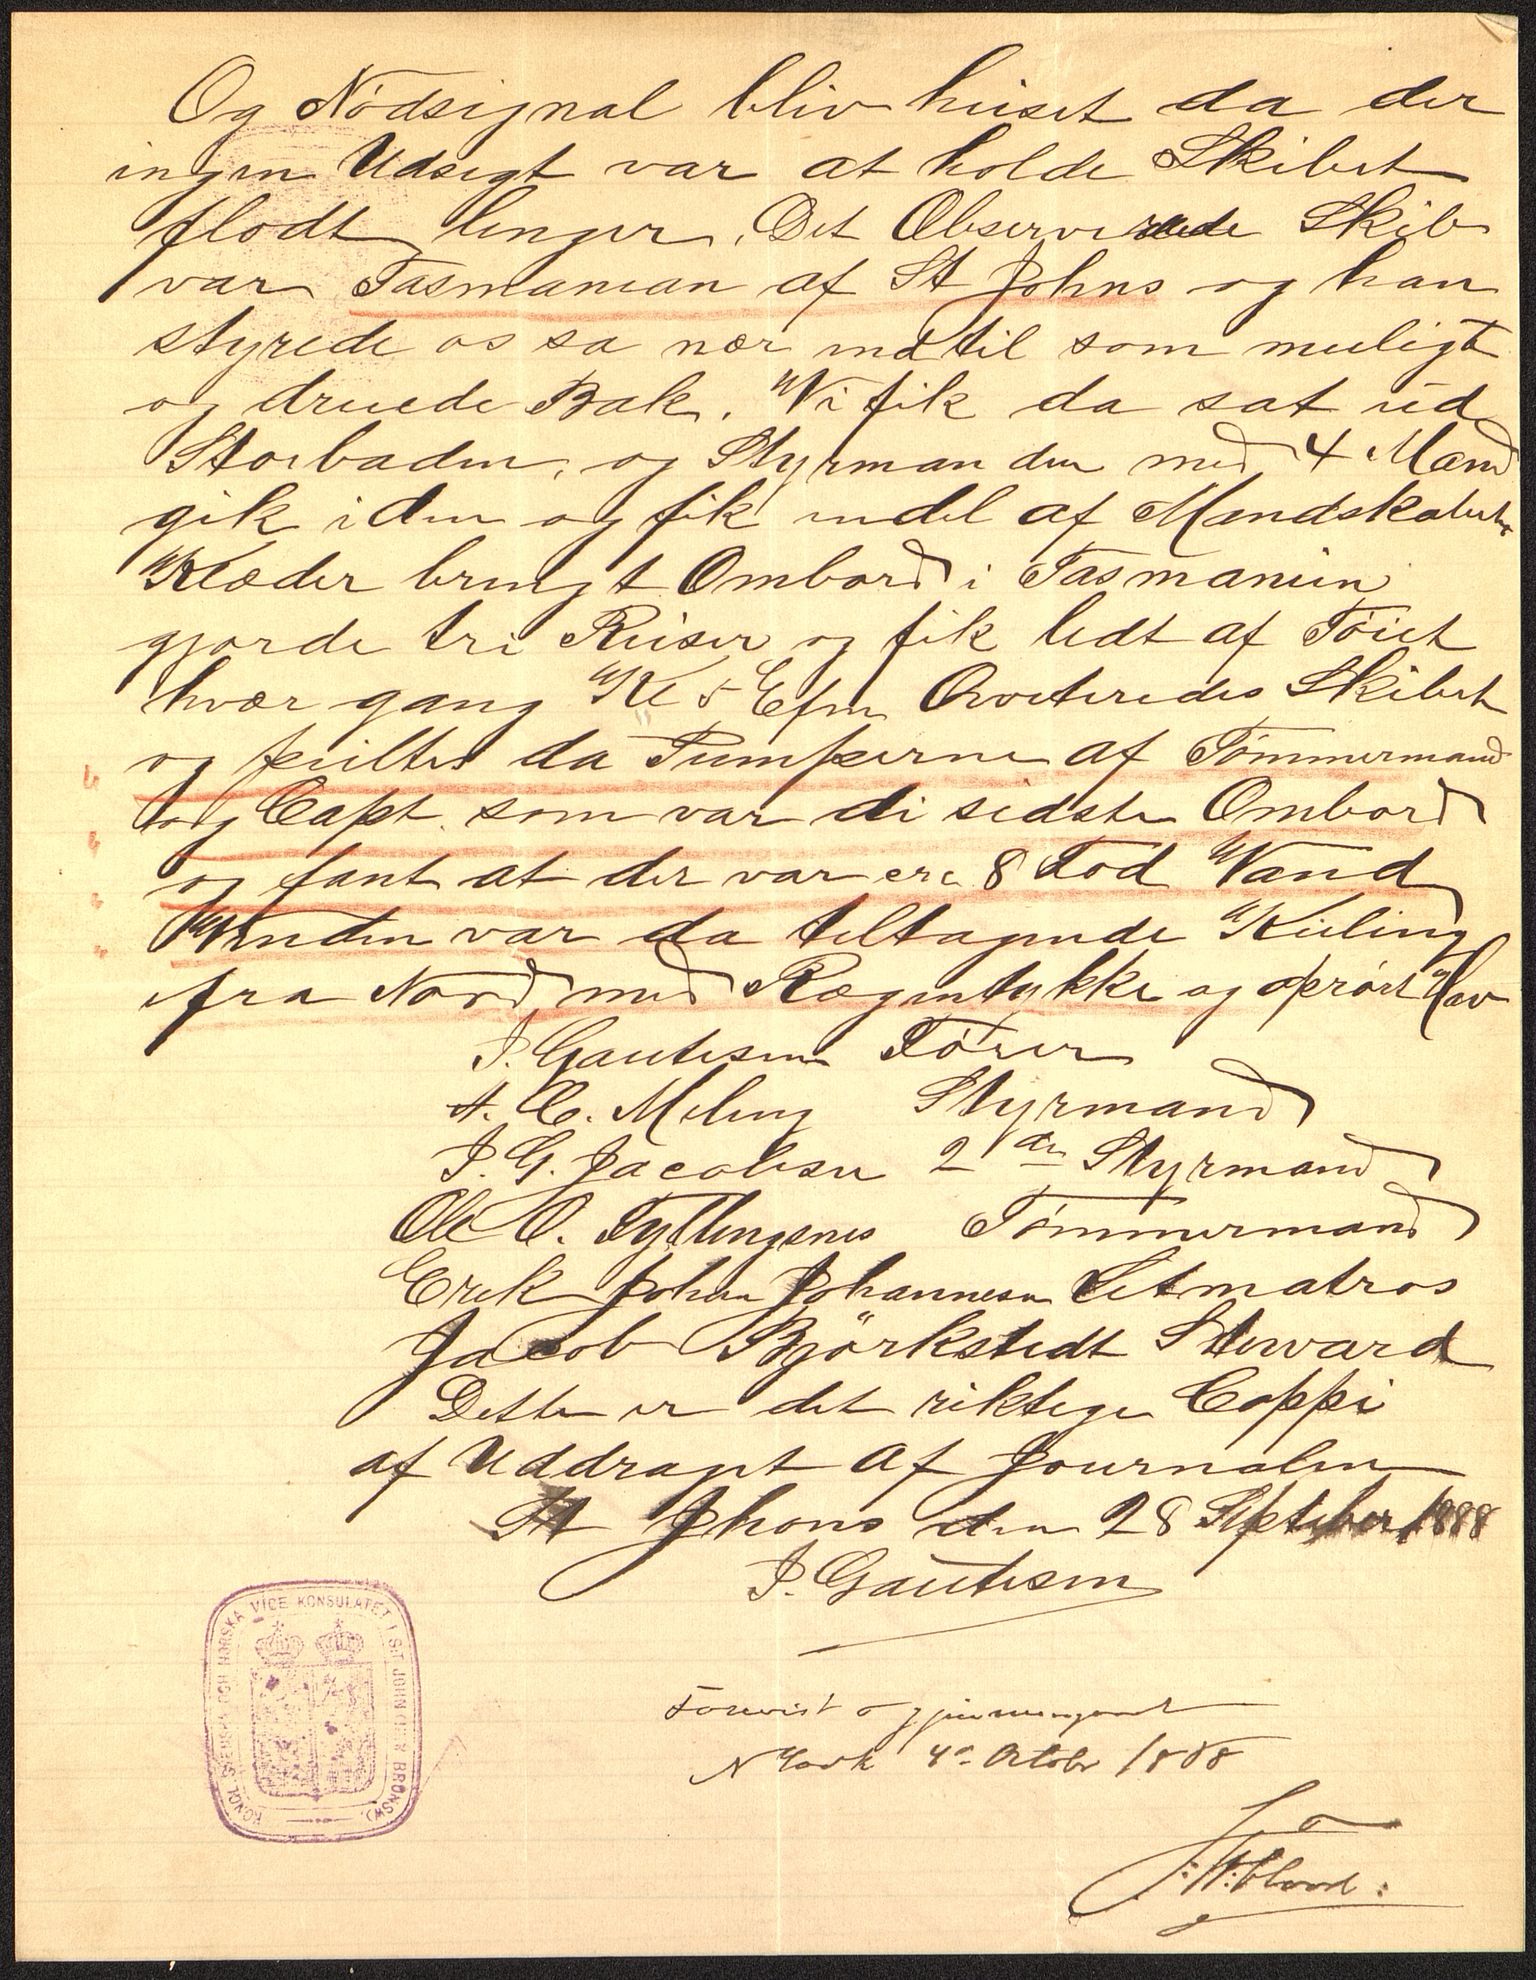 Og Nødsignal bliv heiset da der
ingen Udsigt var at holde Skibet
flodt lenger. Det Observerede Skib
var Tasmanian af St Johns og han
styrede os sa nær indtil som muligt
og dreiede Bak. Wi fik da sat ud
Storbaden, og Styrmanden med 4 Mand
gik i den og fik endel af Mandskabets
Klæder bringt Ombord i Tasmanien
gjorde tri Reiser og fik lidt af Tøiet
hvær gang Kl 5 Efm Qvoteredes Skibet
og peiltes da Pumperne af Tømmermand
og Capt. som var di sidste Ombord
og fant at der var cra 8 Fod Wand
Winden var da teltagende Kuling
ifra Nord med Rægntykke og oprørt Hav
J. Gautesen Fører
A. C. Meling Styrmand
J. G. Jacobsen 2 den Styrmand
Ole O. Tyllingsnes Tømmermand
Erik Johan Johannesen Letmatros
Jacob Björkstedt Steward
Dette er det riktige Coppi
af Uddraget af Journalen
St Jhons den 28 September 1888
J. Gautesen
KONGL. SVENSKA OCH NORSKA VICE KONSULATET I S:T JOHN (NEW BRUNSW.)
Forevist og gjennemgaaet
N York 4de October 1888